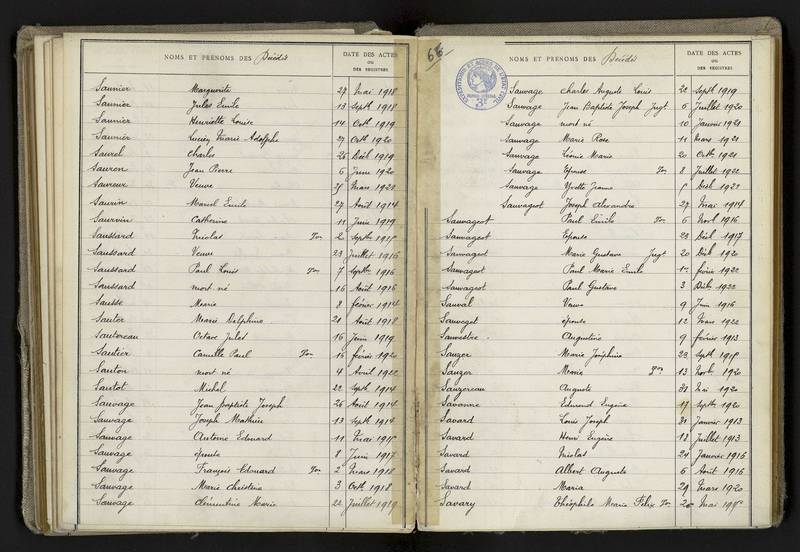 NOMS ET PRÉNOMS DES Décédés
DATE DES ACTES
OU
DES REGISTRES
Saunier Marguerite 27 Mai 1918
Saunier Jules Emile 13 Septb 1918
Saunier Henriette Louise 14 Octb 1919
Saunier Marie Adolphe 27 Octb 1920
Saurel Charles 26 Déeb 1919
Sauron Jean Pierre 6 Juin 1920
Saureux Veuve Mars 1922
Saurin Marcel Emile 27 Août 1914
Saurvin Catherine 11 Juin 1919
Saussard Nicolas 2 Septb
Saussard Veuve 23 Juillet 1916
Saussard Paul Louis 7 Septb 1916
Saussard mort né 16 Août 1916
Sausse Marie 8 février 1914
Sauter Marie Delphine 21 Août 1918
Sautereau Octave Jules 16 Juin 1919
Sautier Camille Paul 16 février 1920
Sauton mort né 4 Avril 1922
Sautot Michel 22 Septb 1914
Sauvage Jean Baptiste Joseph 26 Août 1914
Sauvage Joseph Mathieu 13 Septb 1914
Sauvage Antoine Edouard 11 Mai
Sauvage épouse 8 Juin 1917
Sauvage François Edouard 2 Mars 1918
Sauvage Marie Christine 3 Octb 1918
Sauvage Clémentine Marie 22 Juillet 1919
65
NOMS ET PRÉNOMS DES Décédés
DATE DES ACTES
OU
DES REGISTRES
Sauvage Charles Auguste Louis 21 Septb 1919
Sauvage Jean Baptiste Joseph Jugt 6 Juillet 1920
Sauvage mort né 10 Janvier 1921
Sauvage Marie Rose 11 Mars 1921
Sauvage Léonie Marie 20 Octb 1921
Sauvage Epouse 8 Juillet 1922
Sauvage Yvette Jeanne Déeb 1922
Sauvageot Joseph Alexandre 27 Mai 1914
Sauvageot Paul Emile 6 Novb 1916
Sauvageot Epouse 23 Déeb 1917
Sauvageot Marie Gustave Jugt 20 Déeb 1920
Sauvageot Paul Marie Emile 17 février 1922
Sauvageot Paul Gustave 3 Déeb 1922
Sauval Veuve 9 Juin 1916
Sauveget épouse 12 Mars 1922
Sauvestre Augustine 9 février 1913
Sauzer Marie Joséphine 23 Septb
Sauzer Marie 13 Novb 1920
Sauzereau Auguste 31 Mai 1920
Savanne Edmond Eugène 17 Septb 1920
Savard Louis Joseph 31 Janvier 1913
Savard Henri Eugène 12 Juillet 1913
Savard Nicolas 24 Janvier 1916
Savard Albert Auguste 6 Août 1916
Savard Maria 29 Mars 1920
Savary Théophile Marie Félix 20 Mai